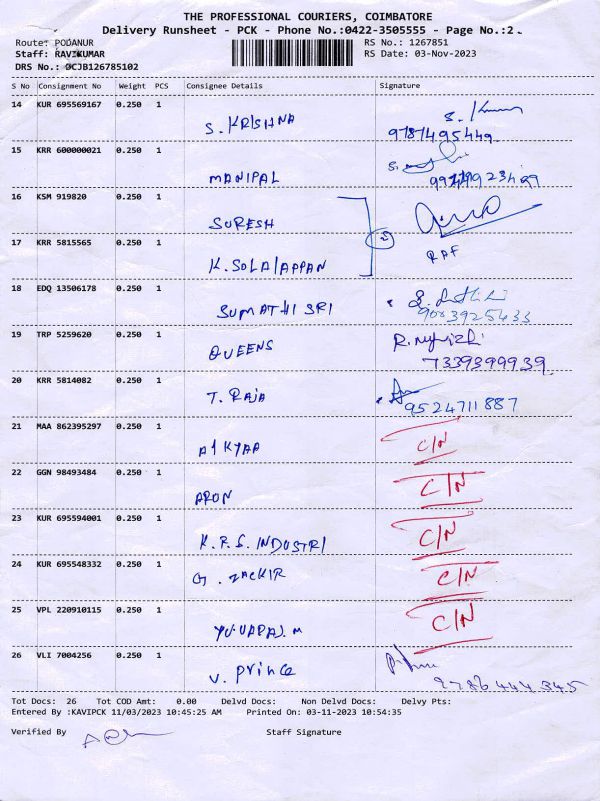 THE PROFESSIONAL COURIERS, COIMBATORE
Delivery Runsheet - PCK - Phone No.:0422-3505555 - Page No.:2
Route: PODANUR RS No.: 1267851
Staff: RAVIKUMAR RS Date: 03-Nov-2023
DRS No.: OCJB126785102
S No Consignment No Weight PCS Consignee Details Signature
14 KUR 695569167 0.250 1
S. KRISHNA
9787495449
15 KRR 600000021 0.250 1
MANIPAL
16 KSM 919820 0.250 1
SURESH
17 KRR 5815565 0.250 1 2
K. SOLAIAPPAN
18 EDQ 13506178 0.250 1
SUMATHI SRI 9003925433
19 TRP 5259620 0.250 1
QUEENS
7339399939
20 KRR 5814082 0.250 1
T. RAJA 9524711887
21 MAA 862395297 0.250 1
C/N
22 GGN 98493484 0.250 1
ARON C/N
23 KUR 695594001 0.250 1
K.R.S. INDUSTRI C/N
24 KUR 695548332 0.250 1
G. ZACKIR C/N
25 VPL 220910115 0.250 1
YUVARAJ. M C/N
26 VLI 7004256 0.250 1
V. Prince 9786444345
Tot Docs: 26 Tot COD Amt: 0.00 Delvd Docs: Non Delvd Docs: Delvy Pts:
Entered By :KAVIPCK 11/03/2023 10:45:25 AM Printed On: 03-11-2023 10:54:35
Verified By Staff Signature